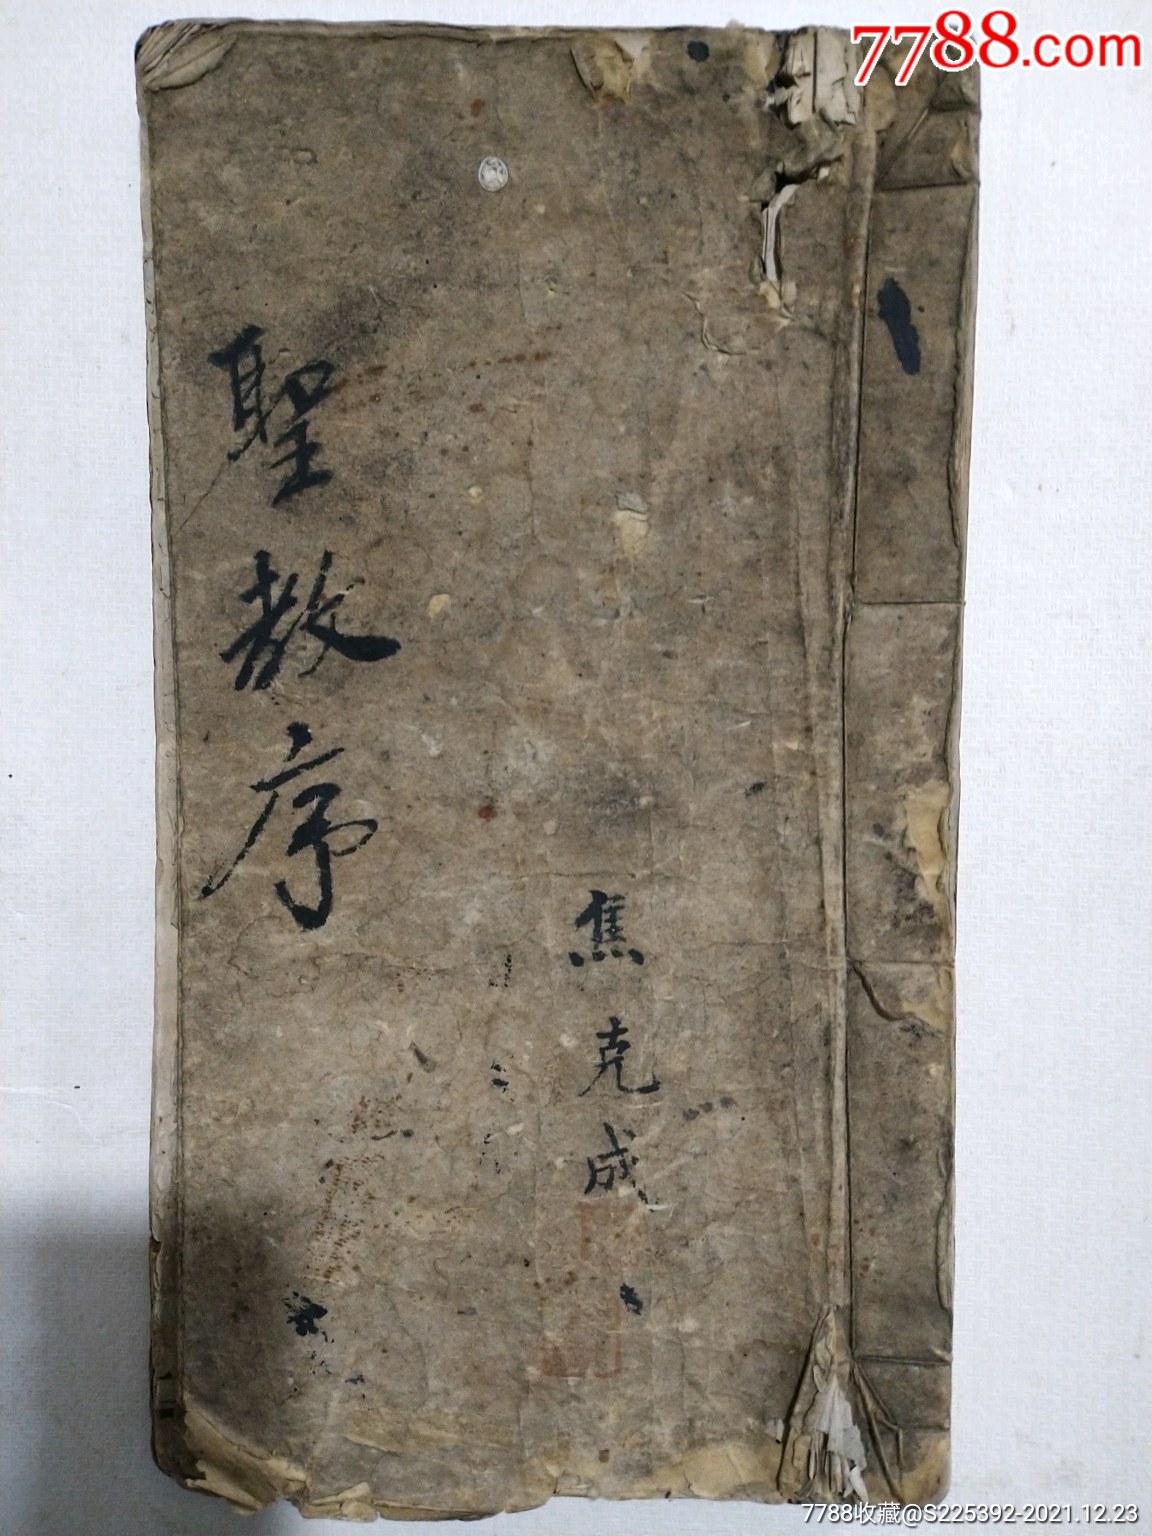 7788.com
聖教序
焦克成
7788收藏@S225392-2021.12.23